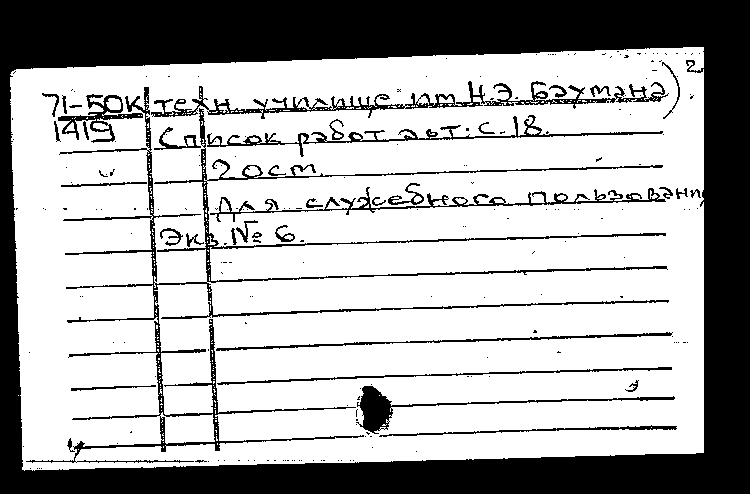 2.
71-50К техн. училище им. Н.Э. Баумана).
1419 Список работ авт: с. 18.
2 ост.
Для служебного пользования
Экз. № 6.